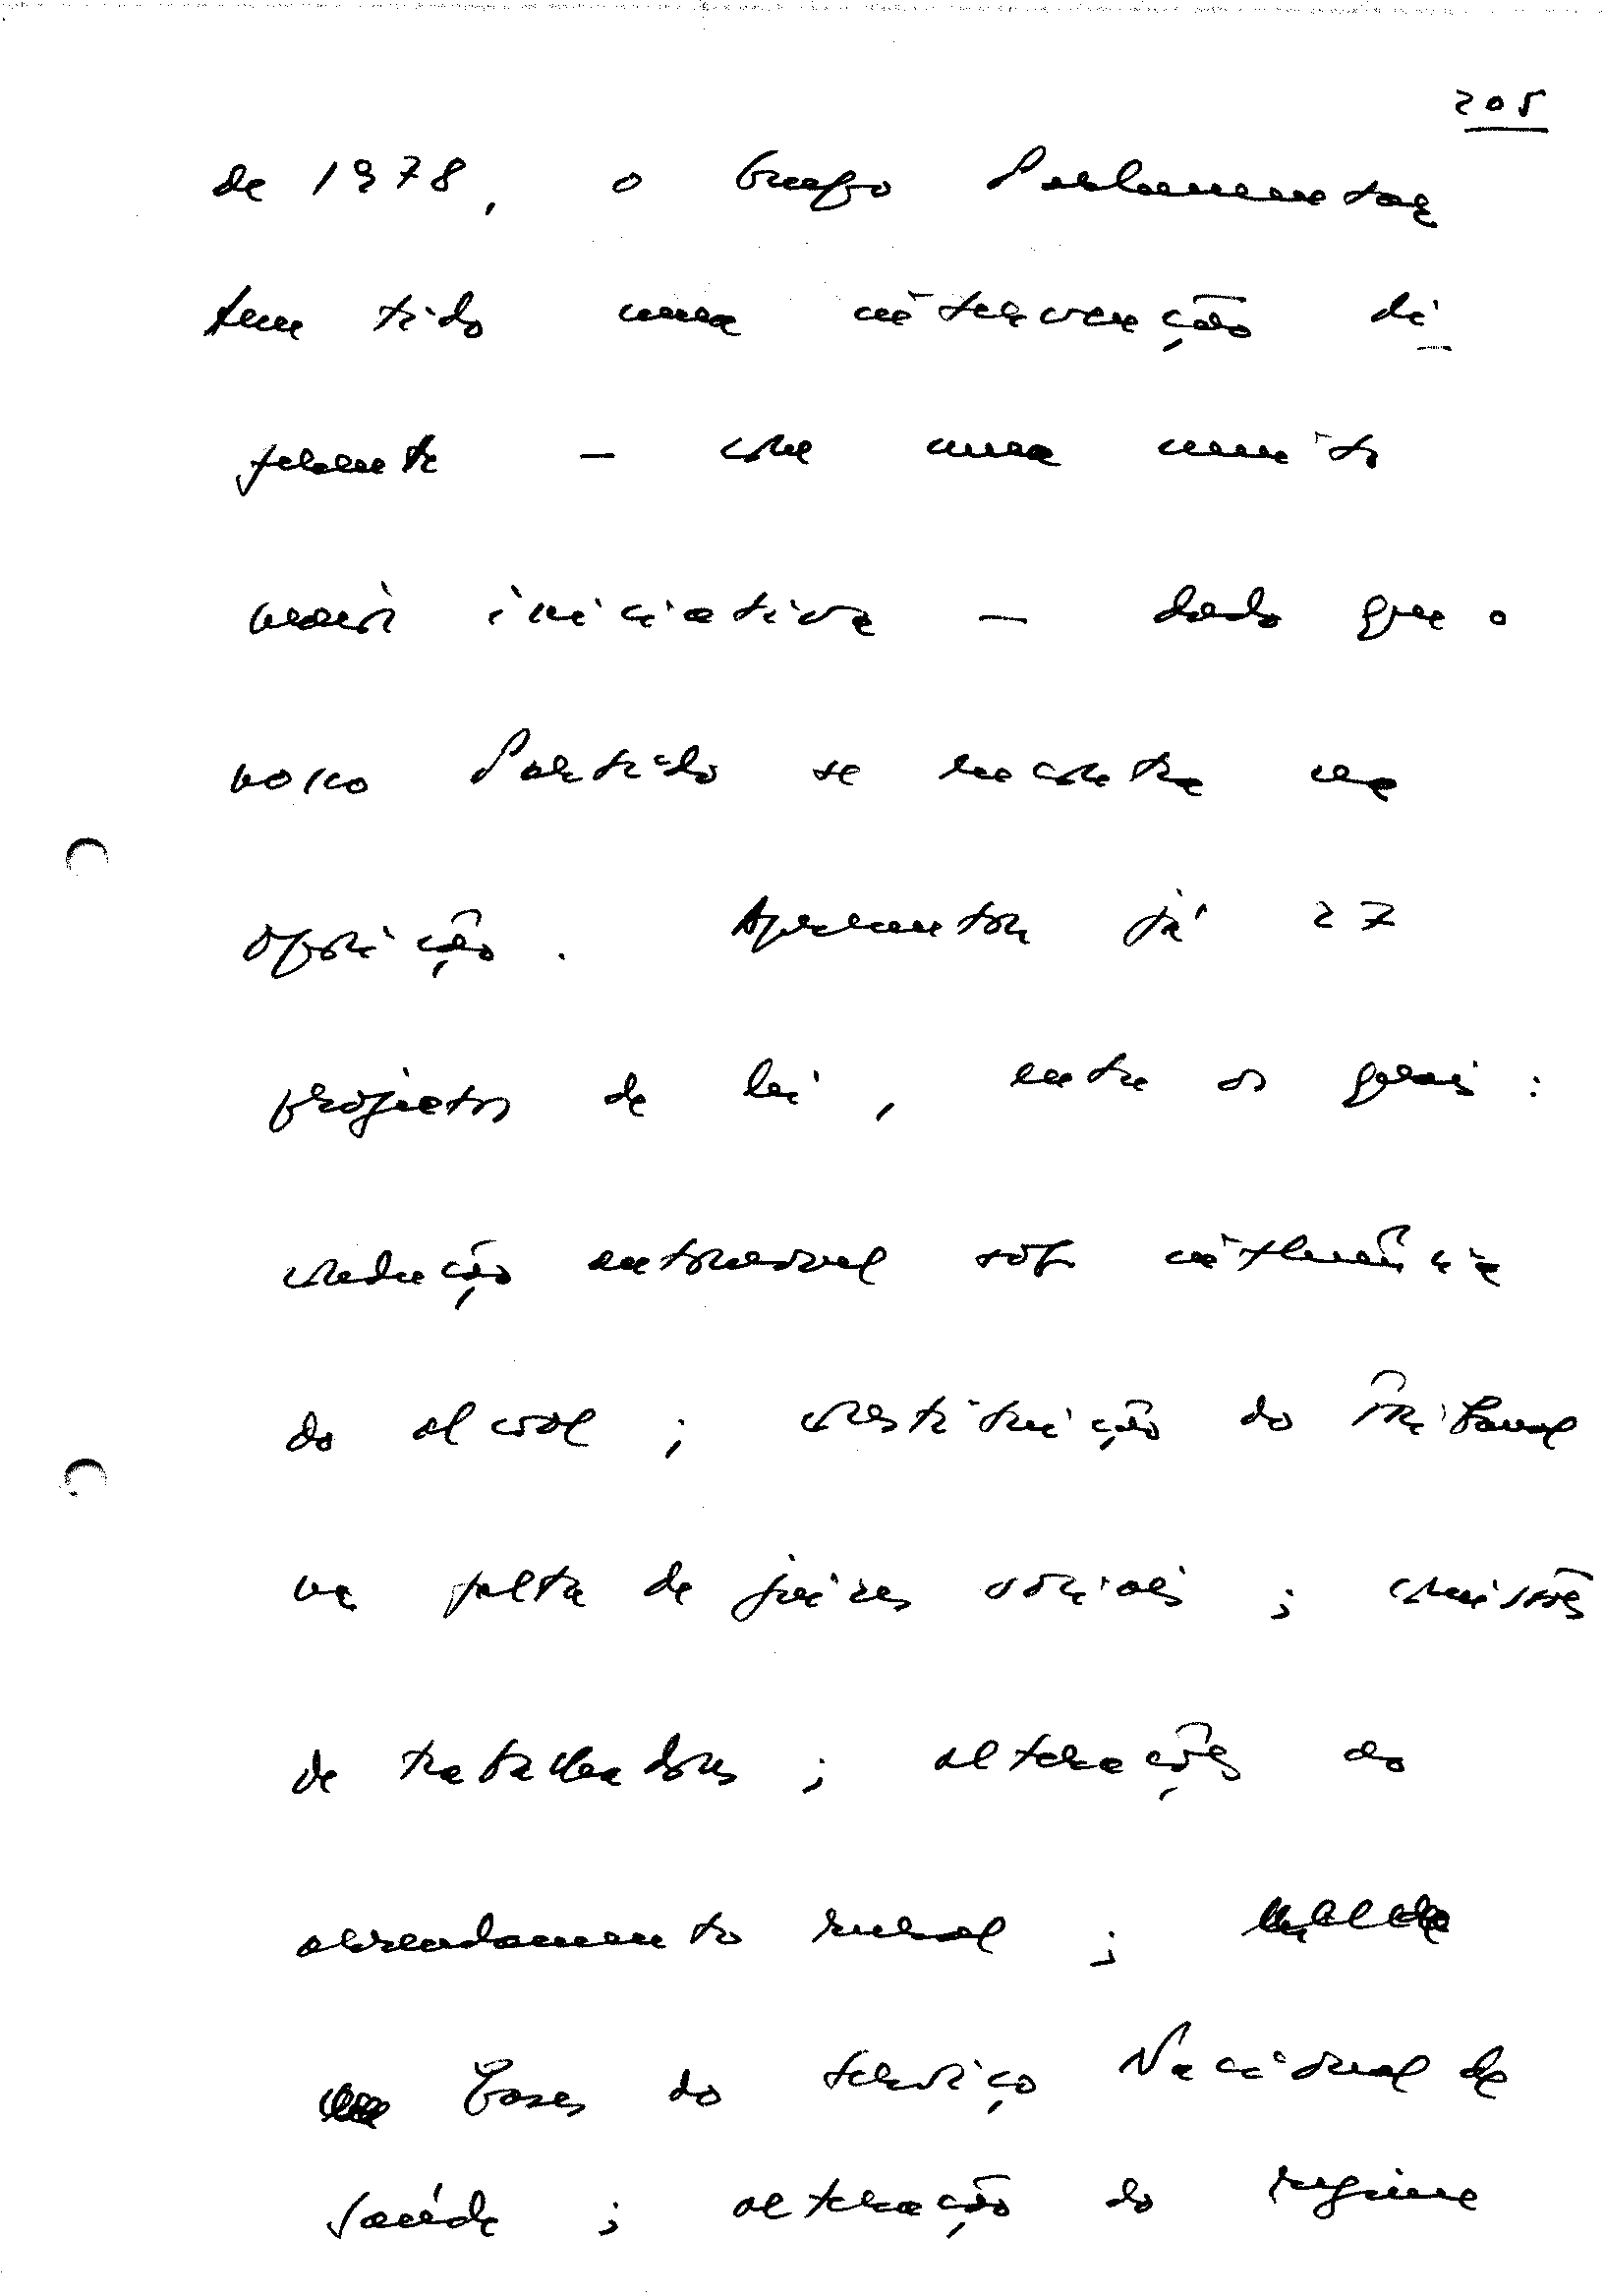 205
de 1978, o Grupo Parlamentar
tem tido uma intervenção di
ferente – com uma muito
maior iniciativa – dado que o
nosso Partido se encontra na
oposição. Apresentou já 27
projectos de lei, entre os quais:
condução automóvel sob influência
do alcool; constituição do Tribunal
na falta de juízes sociais; comissões
de trabalhadores; alterações ao
arrendamento rural;
Bases do Serviço Nacional de
Saúde; alteração do regime